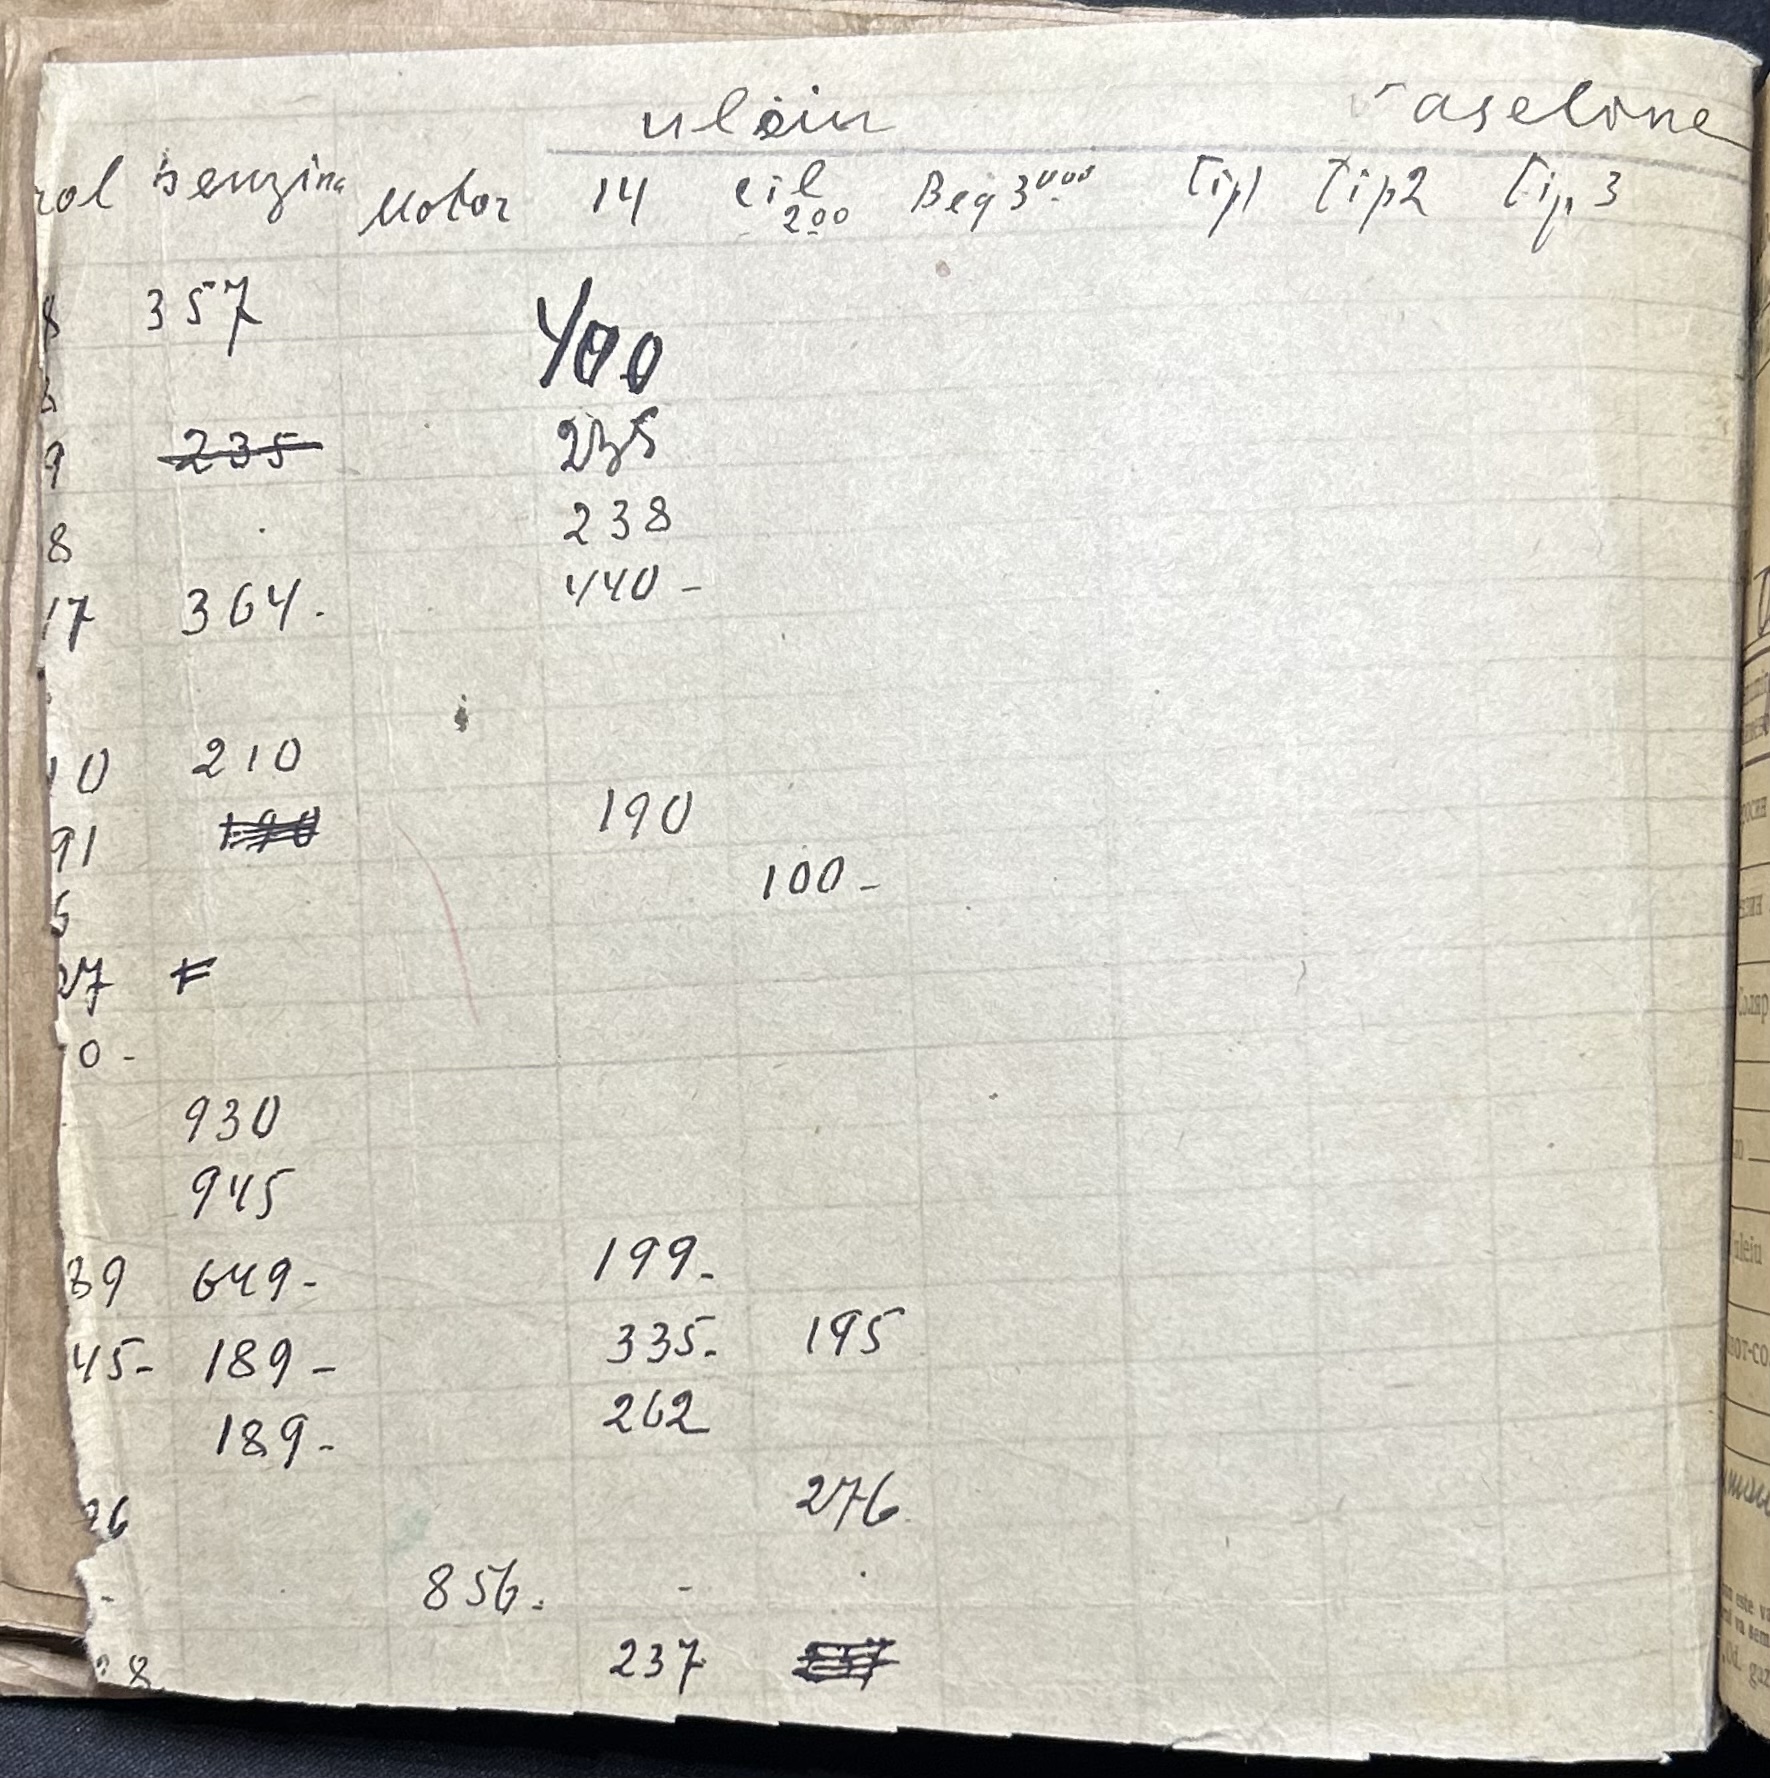 uleiu aselone
rol benzina Motor 14 cil 200 Beg 3000 Tip1 Tip2 Tip. 3
8 357 400
9 235 235
8 238
17 364. 440-
10 210
91 190 190
100-
27
0-
930
945
39 649- 199-
45- 189- 335- 195
189- 262
26 276
- 856. -
8 237